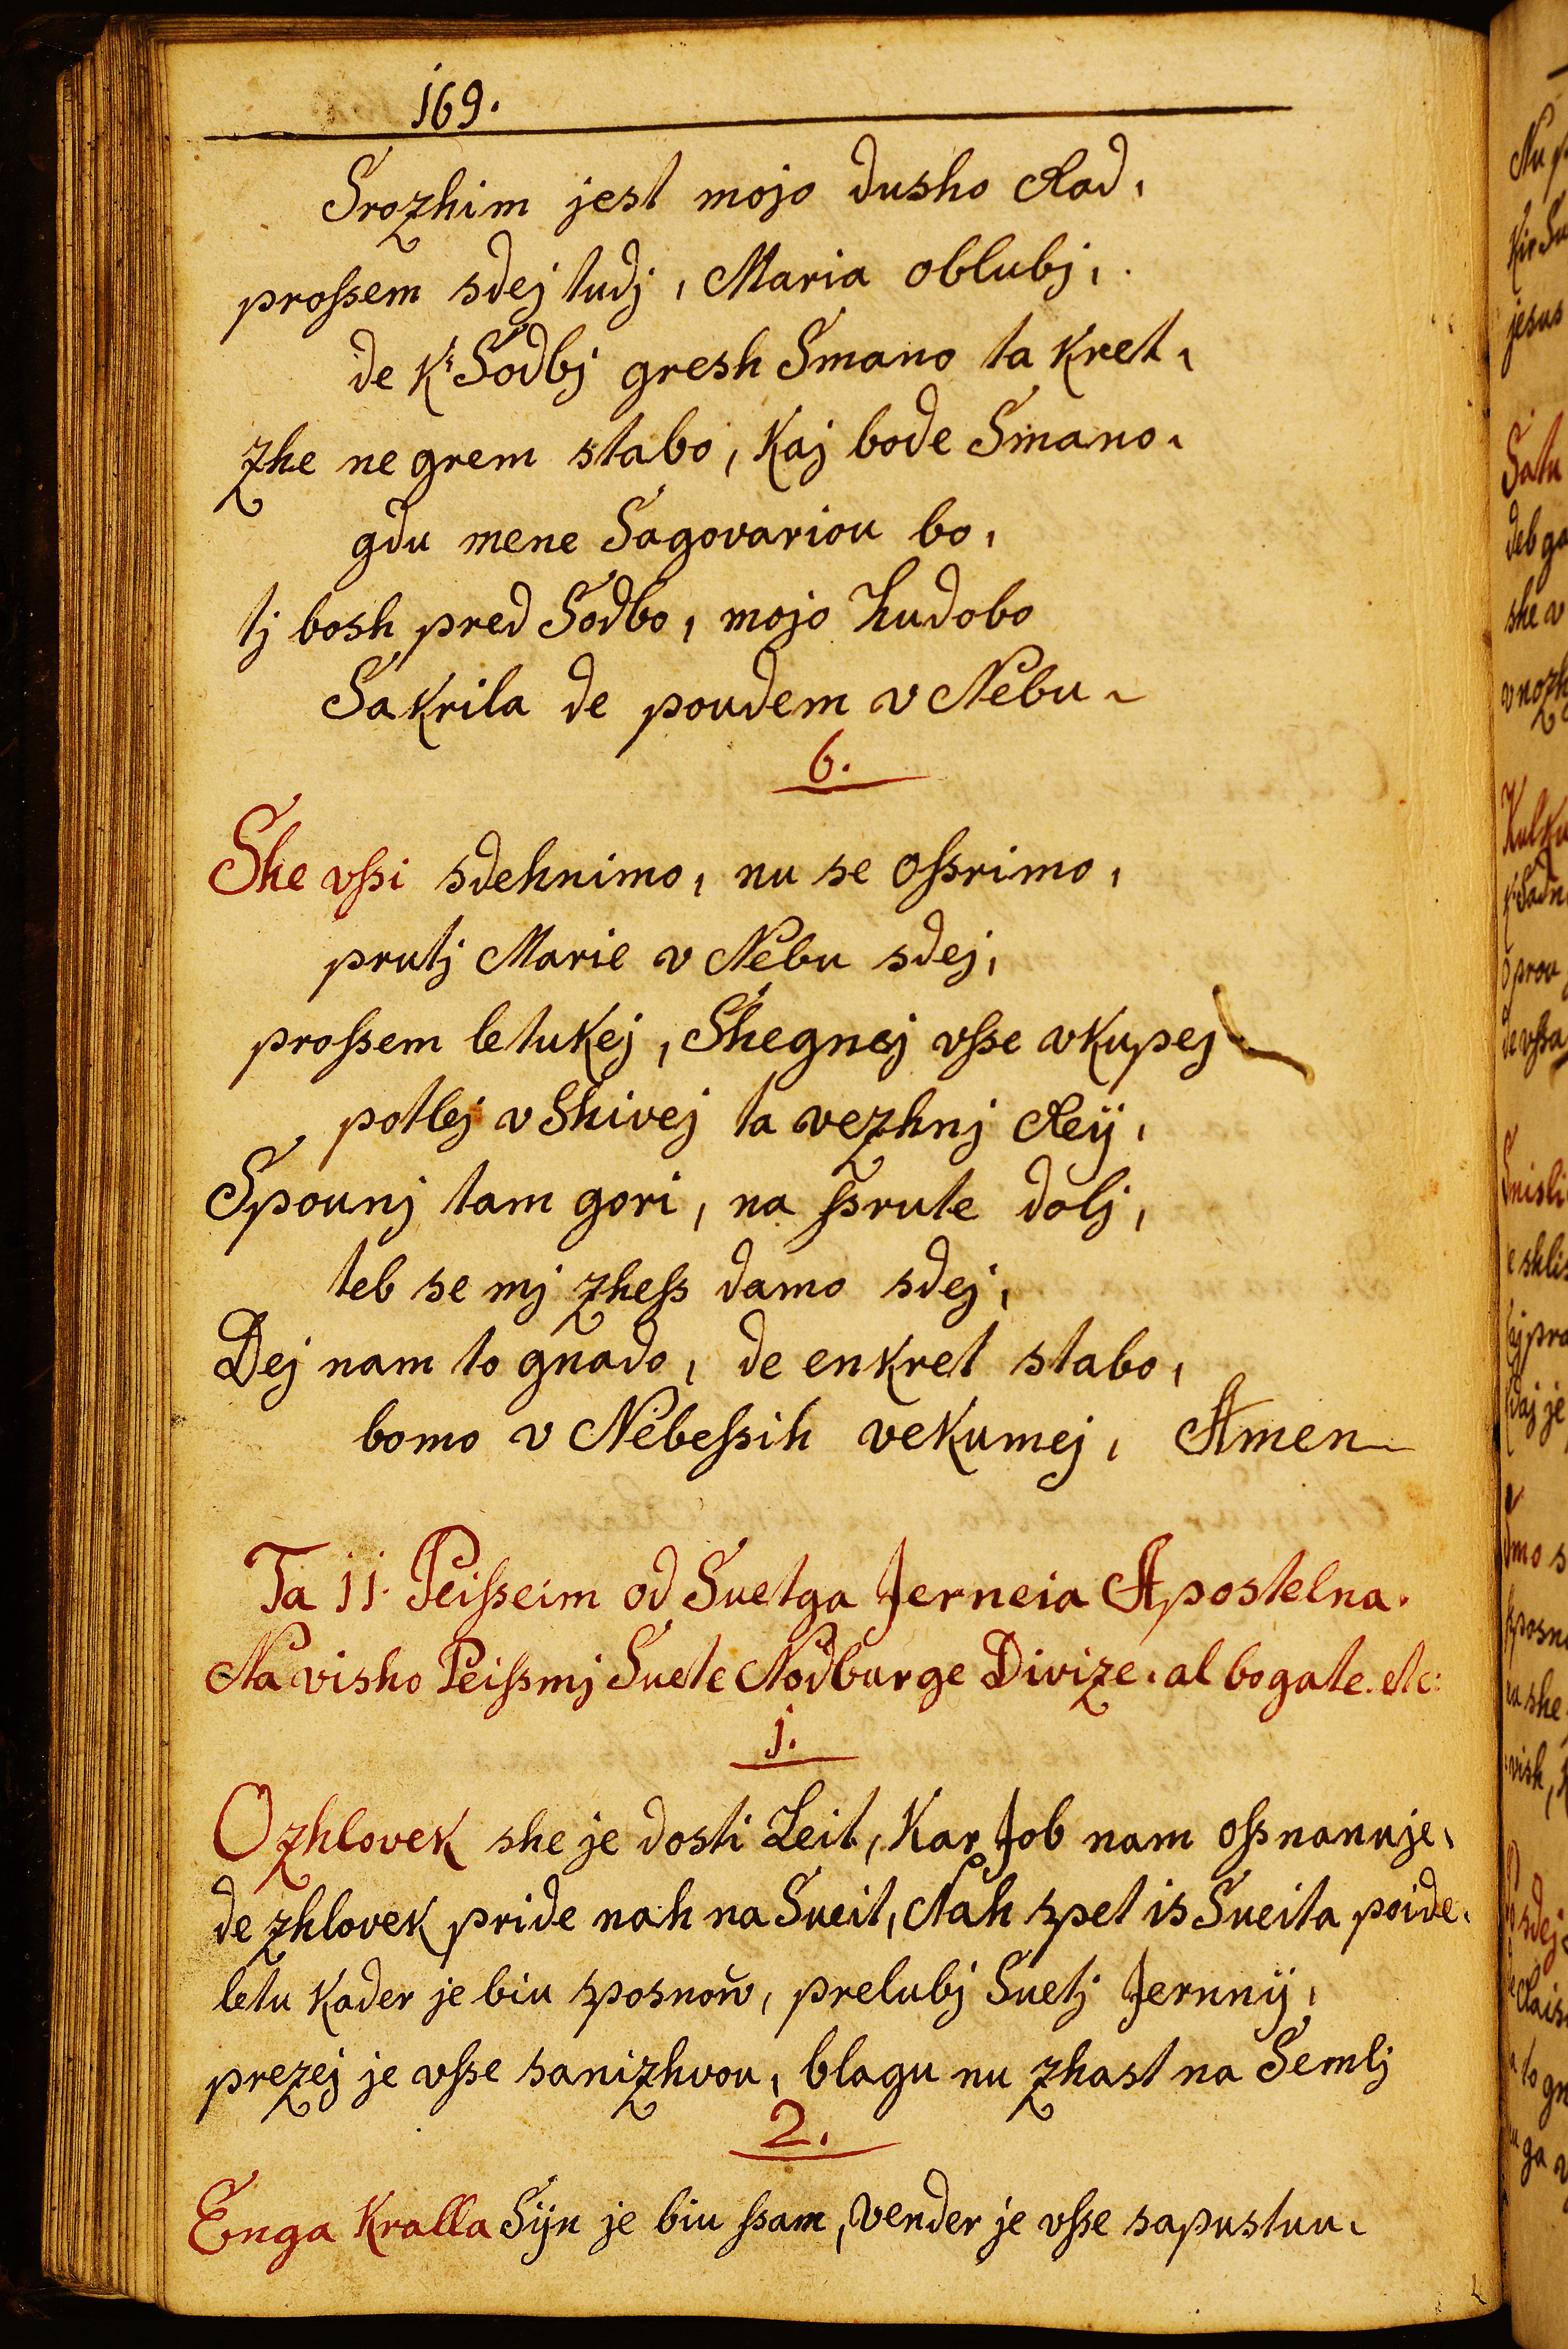 169.
Srozhim jest mojo dusho Rad,
proſsem sdej tudj, Maria oblubj,
de k' Sodbj gresh Smano ta kret,
zhe ne grem stabo, kaj bode Smano,
gdu mene Sagovariou bo,
tj bosh pred Sodbo, mojo hudobo
Sakrila de poudem v Nebu
6.
She vſsi sdehnimo, nu se oſsrimo,
prutj Marie v Nebu sdej,
proſsem letukej, Shegnej vſse vkupej
potlej v Shivej ta vezhnj Reij,
Spounj tam gori, na ſsrute dolj,
teb se mj zheſs damo sdej,
Dej nam to gnado, de enkret stabo,
bomo v Nebeſsih vekumej, Amen
Ta 11. Peiſseim od Suetga Jerneia Apostelna.
Na visho Peiſsmj Suete Nodburge Divize. al bogate. etc:
1.
O zhlovek she je dosti Leit, kar Job nam oſsnanuje,
de zhlovek pride nah na Sueit, Nah spet is Sueita poide.
letu kader je biu sposnow, prelubj Suetj Jernnij,
prezej je vſse sanizhvou, blagu nu zhast na Semlj
2.
Enga kralla Sijn je biu ſsam, vender je vſse sapustuu.